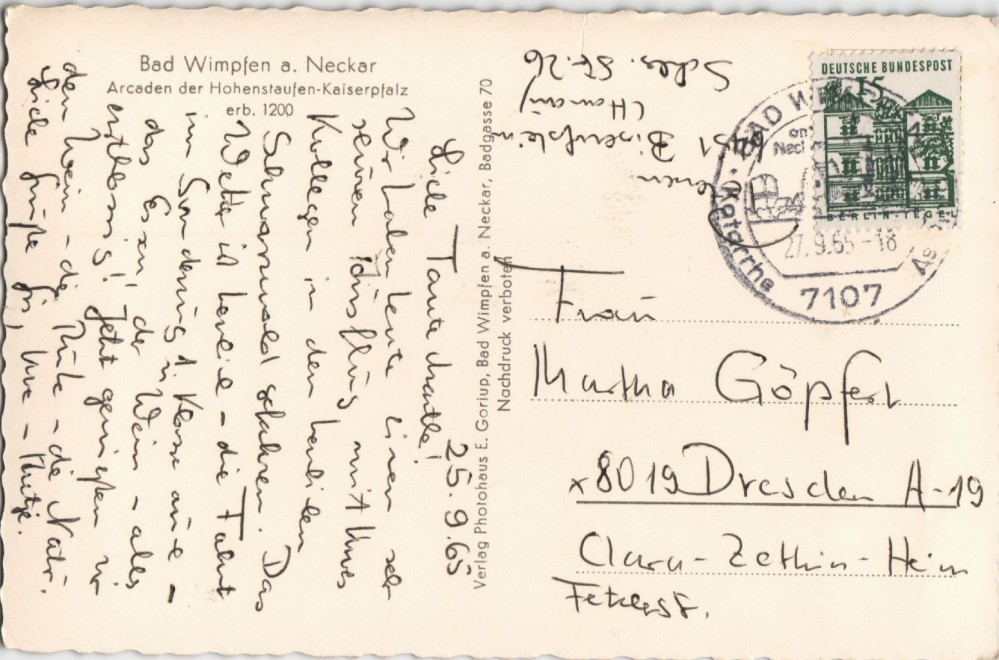 Bad Wimpfen a. Neckar
Arcaden der Hohenstaufen-Kaiserpfalz
erb. 1200
25. 9. 65
Liebe Tante Martha!
Wir haben heute einen sehr
schönen Ausflug mit Uwes
Kollegen in den herrlichen
Schwarzwald gefahren. Das
Wetter ist herrlich - die Fahrt
im Sonderzug 1. Klasse
das Essen, der Wein - alles
erstklassig! Jetzt genießen wir
den Wein - die Ruhe - die Natur.
Liebe Grüße für, Uwe -
Verlag Photohaus E. Goriup, Bad Wimpfen a. Neckar, Badgasse 70
Nachdruck verboten
Schles. Str. 26
(Hanau)
DEUTSCHE BUNDESPOST
15
BERLIN-TEGEL
BAD
Katarrhe
27.9.65-18
7107
Frau
Martha Göpfert
x8019 Dresden A-19
Clara-Zetkin-Heim